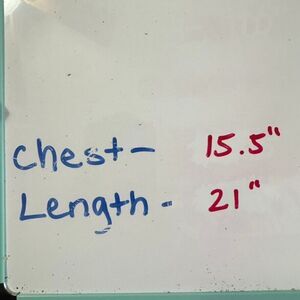 Chest- 15.5"
Length- 21"